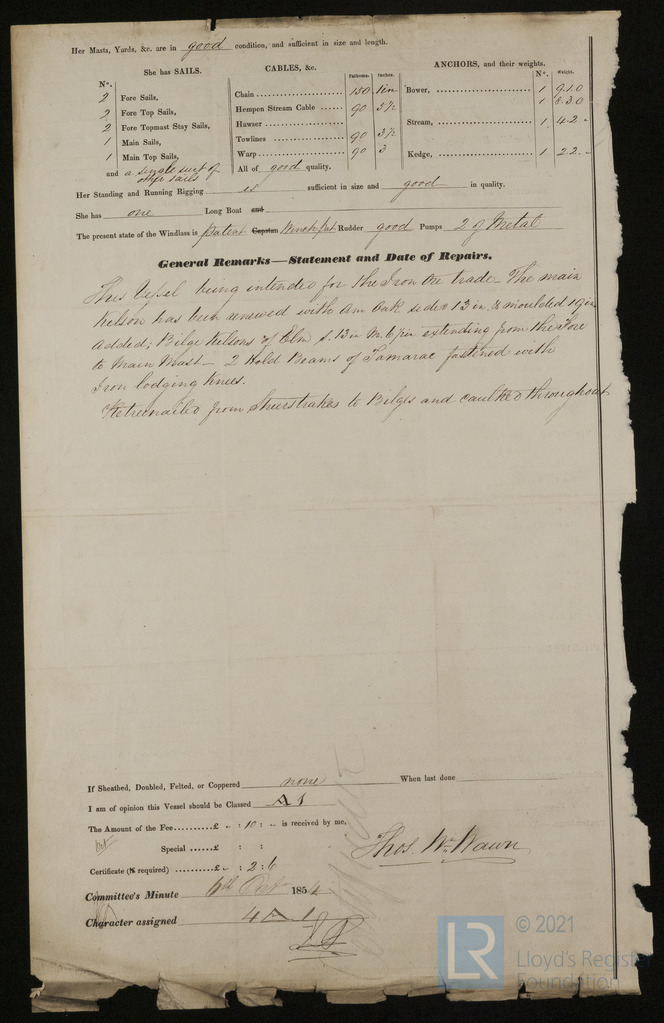 Her Masts, Yards, &c. are in good condition, and sufficient in size and length.
She has SAILS.
CABLES, &c.
Fathoms. Inches.
ANCHORS, and their weights.
N°. Weight.
N°.
2 Fore Sails,
2 Fore Top Sails,
2 Fore Topmast Stay Sails,
1 Main Sails,
1 Main Top Sails,
and a single suit of
other sails
Chain 150 1 in
Hempen Stream Cable 90 3½
Hawser
Towlines 90 3½
Warp 90 3
All of good quality.
Bower, 1 9.1.0
1 8.3.0
Stream, 1 4.2.-
Kedge, 1 2.2.-
Her Standing and Running Rigging is sufficient in size and good in quality.
She has one Long Boat and
The present state of the Windlass is patent Capstan Winch but Rudder good Pumps 2 of Metal
General Remarks—Statement and Date of Repairs.
This Vessel being intended for the Iron Ore trade - The main
Kelson has been renewed with Am Oak sided 13 in & moulded 19 in
added; Bilge Kelsons of Elm S. 13 in M. 6½ in extending from the Fore
to Main Mast - 2 Hold Beams of Tamarac fastened with
Iron lodging Knees.
Retreenailed from Sheerstrakes to Bilges and caulked throughout
If Sheathed, Doubled, Felted, or Coppered none When last done
I am of opinion this Vessel should be Classed A 1
The Amount of the Fee £ - : 10 : - is received by me,
Special £ : :
Thos. Wm. Wawn
Certificate (if required) £ - : 2 : 6
Committee's Minute 185
Character assigned 4 A 1
LR
© 2021
Lloyd's Register
Foundation